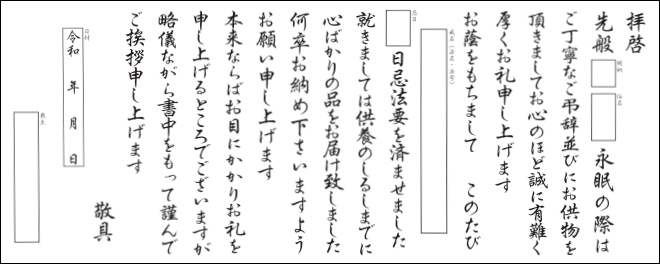 拝啓
先般 続柄 俗名 永眠の際は
ご丁寧なご弔辞並びにお供物を
頂きましてお心のほど誠に有難く
厚くお礼申し上げます
お蔭をもちまして このたび
戒名(法名・法号)
忌日
日忌法要を済ませました
就きましては供養のしるしまでに
心ばかりの品をお届け致しました
何卒お納め下さいますよう
お願い申し上げます
本来ならばお目にかかりお礼を
申し上げるところでございますが
略儀ながら書中をもって謹んで
ご挨拶申し上げます
敬具
日付
令和 年 月 日
喪主